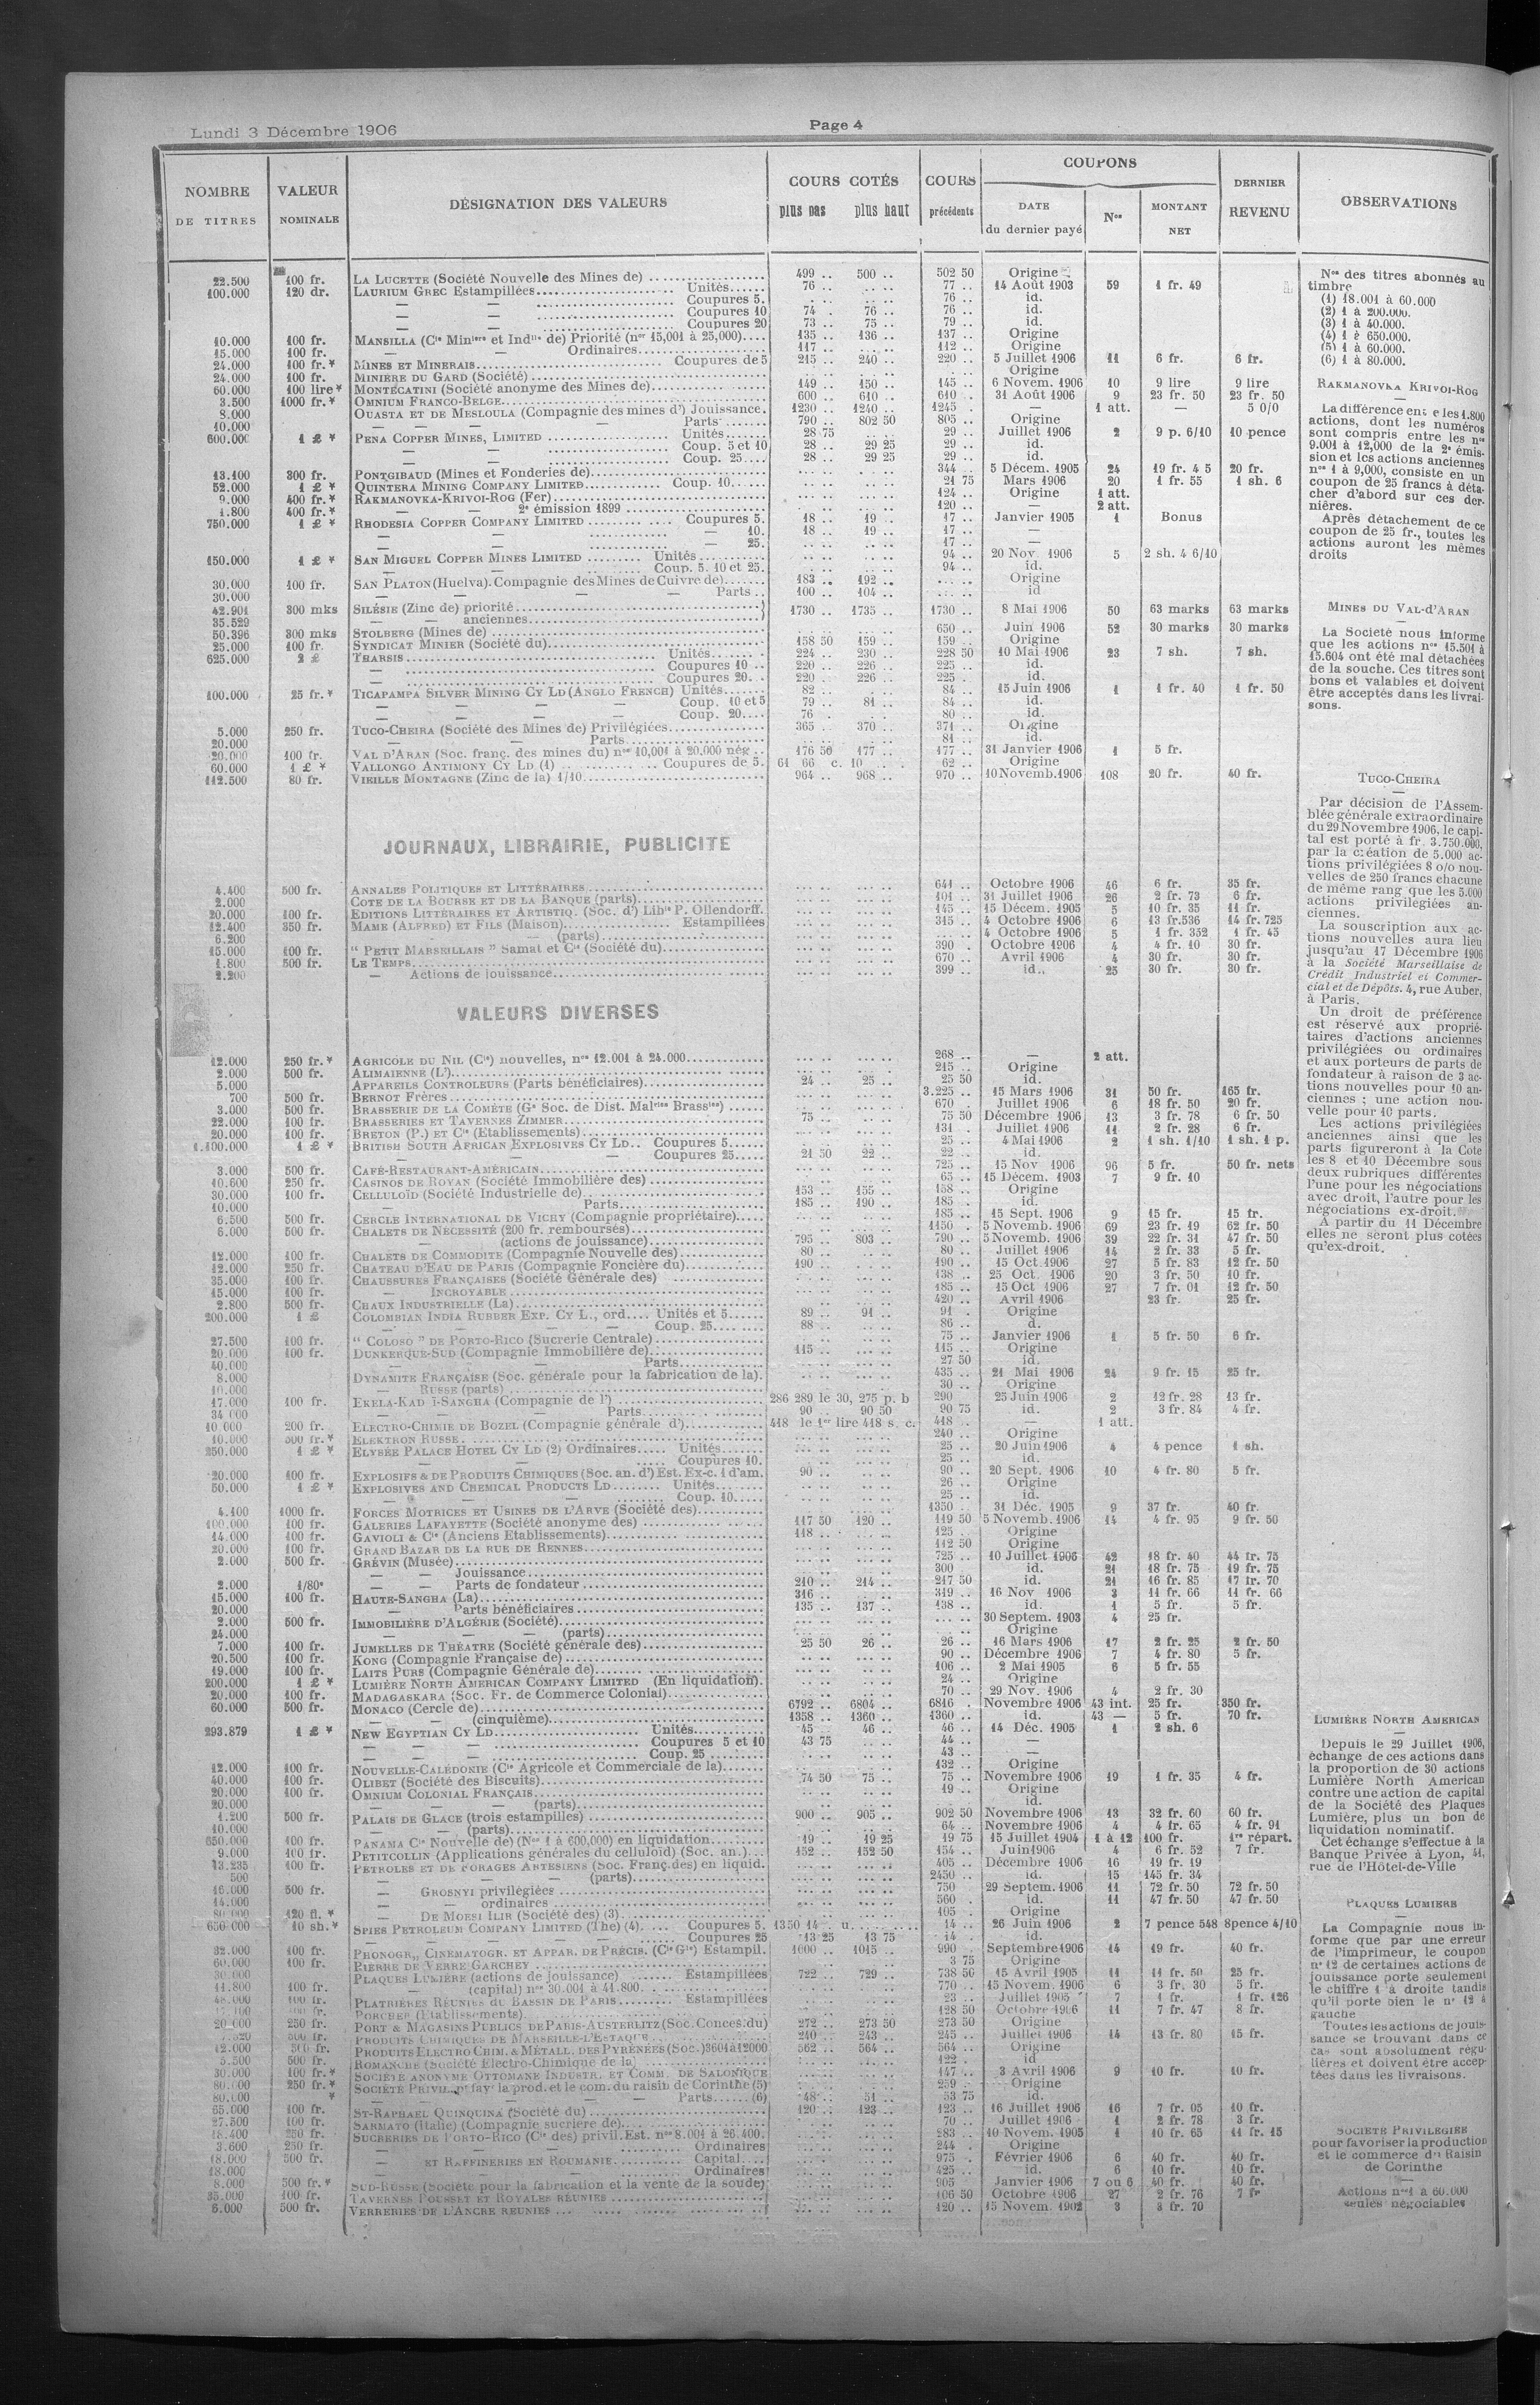 Lundi 3 Décembre 1906
Page 4
NOMBRE DE TITRES
VALEUR NOMINALE
DÉSIGNATION DES VALEURS
COURS COTÉS
plus bas plus haut
COURS précédents
COUPONS
DATE du dernier payé
Nos
MONTANT NET
DERNIER REVENU
OBSERVATIONS
22.500 100 fr. LA LUCETTE (Société Nouvelle des Mines de) 499 .. 500 .. 502 50 Origine
100.000 120 dr. LAURIUM GREC Estampillées Unités 76 .. 77 .. 14 Août 1903 59 1 fr. 49
— — Coupures 5. 76 .. id.
— — Coupures 10 74 . 76 .. 76 .. id.
— — Coupures 20 73 .. 75 .. 79 .. id.
10.000 100 fr. MANSILLA (Cie Minière et Indlle de) Priorité (nos 15,001 à 25,000) 135 .. 136 .. 137 .. Origine
15.000 100 fr. — Ordinaires 117 .. 112 .. Origine
24.000 100 fr.* MINES ET MINERAIS Coupures de 5 215 .. 240 .. 220 .. 5 Juillet 1906 11 6 fr. 6 fr.
24.000 100 fr. MINIERE DU GARD (Société) Origine
60.000 100 lire* MONTECATINI (Société anonyme des Mines de) 149 .. 150 .. 145 .. 6 Novem. 1906 10 9 lire 9 lire
3.500 1000 fr.* OMNIUM FRANCO-BELGE 600 .. 610 .. 610 .. 31 Août 1906 9 23 fr. 50 23 fr. 50
8.000 OUASTA ET DE MESLOULA (Compagnie des mines d') Jouissance. 1230 .. 1240 .. 1245 . — 1 att. — 5 0/0
10.000 — — Parts 790 .. 802 50 805 .. Origine
600.000 1 £ * PENA COPPER MINES, LIMITED Unités 28 75 29 .. Juillet 1906 2 9 p. 6/10 10 pence
— — Coup. 5 et 10 28 .. 29 25 29 .. id.
— — Coup. 25 28 .. 29 25 29 .. id.
13.400 300 fr. PONTGIBAUD (Mines et Fonderies de) 344 .. 5 Décem. 1905 24 19 fr. 45 20 fr.
52.000 1 £ * QUINTERA MINING COMPANY LIMITED Coup. 10 21 75 Mars 1906 20 1 fr. 55 1 sh. 6
9.000 400 fr.* RAKMANOVKA-KRIVOI-ROG (Fer) 124 .. Origine 1 att.
1.800 400 fr.* — — 2e émission 1899 120 .. — 2 att.
750.000 1 £ * RHODESIA COPPER COMPANY LIMITED Coupures 5. 18 .. 19 .. 17 .. Janvier 1905 1 Bonus
— — — 10. 18 .. 19 .. 17 .. —
— — — 25. 17 .. —
150.000 1 £ * SAN MIGUEL COPPER MINES LIMITED Unités 94 .. 20 Nov. 1906 5 2 sh. 4 6/10
— — Coup. 5. 10 et 25. 94 .. id.
30.000 100 fr. SAN PLATON (Huelva). Compagnie des Mines de Cuivre de) 183 .. 192 .. Origine
30.000 — — — — Parts .. 100 .. 104 .. id
42.901 300 mks SILÉSIE (Zinc de) priorité 1730 .. 1735 .. 1730 .. 8 Mai 1906 50 63 marks 63 marks
35.529 — — anciennes
50.396 300 mks STOLBERG (Mines de) 650 .. Juin 1906 52 30 marks 30 marks
25.000 100 fr. SYNDICAT MINIER (Société du) 158 50 159 .. 159 .. Origine
625.000 2 £ THARSIS Unités 224 .. 230 .. 228 50 10 Mai 1906 23 7 sh. 7 sh.
— Coupures 10 220 .. 226 .. 225 .. id.
— Coupures 20 220 .. 226 .. 225 . id.
100.000 25 fr.* TICAPAMPA SILVER MINING CY LD (ANGLO FRENCH) Unités 82 .. 84 .. 15 Juin 1906 1 1 fr. 40 1 fr. 50
— — — — Coup. 10 et 5 79 .. 81 .. 84 .. id.
— — — — Coup. 20 76 . 80 .. id.
5.000 250 fr. TUCO-CHEIRA (Société des Mines de) Privilégiées 365 .. 370 .. 371 .. Origine
20.000 — — Parts 81 .. id.
20.000 100 fr. VAL D'ARAN (Soc. franç. des mines du) nos 10,001 à 20.000 nég .. 176 50 177 .. 177 .. 31 Janvier 1906 1 5 fr.
60.000 1 £ * VALLONGO ANTIMONY CY LD (1) Coupures de 5. 61 66 c. 10 62 .. Origine
112.500 80 fr. VIEILLE MONTAGNE (Zinc de la) 1/10 964 .. 968 .. 970 .. 10 Novemb. 1906 108 20 fr. 40 fr.
JOURNAUX, LIBRAIRIE, PUBLICITE
4.400 500 fr. ANNALES POLITIQUES ET LITTÉRAIRES 641 .. Octobre 1906 46 6 fr. 35 fr.
2.000 COTE DE LA BOURSE ET DE LA BANQUE (parts) 101 .. 31 Juillet 1906 26 2 fr. 73 6 fr.
20.000 100 fr. EDITIONS LITTÉRAIRES ET ARTISTIQ. (Soc. d') Libie P. Ollendorff. 145 .. 15 Décem. 1905 5 10 fr. 35 11 fr.
12.400 350 fr. MAME (ALFRED) ET FILS (Maison) Estampillées 315 .. 4 Octobre 1906 6 13 fr.536 14 fr.725
6.200 — (parts) 4 Octobre 1906 5 1 fr. 352 1 fr. 45
15.000 100 fr. “ PETIT MARSEILLAIS ” Samat et Cie (Société du) 390 . Octobre 1906 4 4 fr. 10 30 fr.
1.800 500 fr. LE TEMPS 670 .. Avril 1906 4 30 fr. 30 fr.
2.200 — Actions de jouissance 399 .. id.. 25 30 fr. 30 fr.
VALEURS DIVERSES
12.000 250 fr.* AGRICOLE DU NIL (Cie) nouvelles, nos 12.001 à 24.000 268 .. — 2 att.
2.000 500 fr. ALIMAIENNE (L') 215 .. Origine
5.000 APPAREILS CONTROLEURS (Parts bénéficiaires) 24 .. 25 .. 25 50 id.
700 500 fr. BERNOT Frères 3.225 .. 15 Mars 1906 31 50 fr. 165 fr.
3.000 500 fr. BRASSERIE DE LA COMÈTE (Ge Soc. de Dist. Malries Brassies) 670 .. Juillet 1906 6 18 fr. 50 20 fr.
22.000 100 fr. BRASSERIES ET TAVERNES ZIMMER 75 .. 75 50 Décembre 1906 13 3 fr. 78 6 fr. 50
20.000 100 fr. BRETON (P.) ET Cie (Etablissements) 131 . Juillet 1906 11 2 fr. 28 6 fr.
1.100.000 1 £ * BRITISH SOUTH AFRICAN EXPLOSIVES CY LD.. Coupures 5 25 .. 4 Mai 1906 2 1 sh. 1/10 1 sh. 1 p.
— — — Coupures 25 21 50 22 .. 22 .. id.
3.000 500 fr. CAFÉ-RESTAURANT-AMÉRICAIN 725 .. 15 Nov 1906 96 5 fr. 50 fr. nets
10.600 250 fr. CASINOS DE ROYAN (Société Immobilière des) 65 .. 15 Décem. 1903 7 9 fr. 10
30.000 100 fr. CELLULOÏD (Société Industrielle de) 153 .. 155 .. 158 .. Origine
10.000 — Parts 185 .. 190 .. 185 . id.
6.500 500 fr. CERCLE INTERNATIONAL DE VICHY (Compagnie propriétaire) 185 .. 15 Sept. 1906 9 15 fr. 15 fr.
6.000 500 fr. CHALETS DE NÉCESSITÉ (200 fr. remboursés) 1150 . 5 Novemb. 1906 69 23 fr. 19 62 fr. 50
— (actions de jouissance) 795 .. 803 .. 790 .. 5 Novemb. 1906 39 22 fr. 31 47 fr. 50
12.000 100 fr. CHALETS DE COMMODITÉ (Compagnie Nouvelle des) 80 .. 80 .. Juillet 1906 14 2 fr. 33 5 fr.
12.000 250 fr. CHATEAU D'EAU DE PARIS (Compagnie Foncière du) 190 .. 190 .. 15 Oct. 1906 27 5 fr. 83 12 fr. 50
35.000 100 fr. CHAUSSURES FRANÇAISES (Société Générale des) 138 .. 25 Oct. 1906 20 3 fr. 50 10 fr.
15.000 100 fr. — INCROYABLE 185 .. 15 Oct 1906 27 7 fr. 01 12 fr. 50
2.800 500 fr. CHAUX INDUSTRIELLE (La) 420 .. Avril 1906 23 fr. 25 fr.
200.000 1 £ COLOMBIAN INDIA RUBBER EXP. CY L., ord.... Unités et 5 89 .. 91 .. 91 . Origine
— — — Coup. 25 88 .. 86 .. d.
27.500 100 fr. “ COLOSO ” DE PORTO-RICO (Sucrerie Centrale) 75 .. Janvier 1906 1 5 fr. 50 6 fr.
20.000 100 fr. DUNKERQUE-SUD (Compagnie Immobilière de) 115 .. 115 .. Origine
40.000 — — Parts 27 50 id.
8.000 DYNAMITE FRANÇAISE (Soc. générale pour la fabrication de la). 435 .. 21 Mai 1906 24 9 fr. 15 25 fr.
10.000 — RUSSE (parts) 30 .. Origine
17.000 100 fr. EKELA-KADÏ-SANGHA (Compagnie de l') 286 289 le 30, 275 p. b 290 25 Juin 1906 2 12 fr. 28 13 fr.
34 000 — — Parts 90 .. 90 50 90 75 id. 2 3 fr. 84 4 fr.
10 000 200 fr. ELECTRO-CHIMIE DE BOZEL (Compagnie générale d') 418 le 1er lire 418 s. c. 418 .. — 1 att.
10.000 500 fr.* ELEKTRON RUSSE 240 .. Origine
250.000 1 £ * ELYSÉE PALACE HOTEL CY LD (2) Ordinaires Unités 25 .. 20 Juin 1906 4 4 pence 1 sh.
— — Coupures 10. 25 .. id.
20.000 100 fr. EXPLOSIFS & DE PRODUITS CHIMIQUES (Soc. an. d') Est. Ex-c. 1 d'am. 90 .. 90 .. 20 Sept. 1906 10 4 fr. 80 5 fr.
50.000 1 £ * EXPLOSIVES AND CHEMICAL PRODUCTS LD Unités 26 .. Origine
— — Coup. 10 25 .. id.
4.400 1000 fr. FORCES MOTRICES ET USINES DE L'ARVE (Société des) 1350 .. 31 Déc. 1905 9 37 fr. 40 fr.
100.000 100 fr. GALERIES LAFAYETTE (Société anonyme des) 117 50 120 .. 119 50 5 Novemb. 1906 14 4 fr. 95 9 fr. 50
14.000 100 fr. GAVIOLI & Cie (Anciens Etablissements) 118 .. 125 . Origine
20.000 100 fr. GRAND BAZAR DE LA RUE DE RENNES 112 50 Origine
2.000 500 fr. GRÉVIN (Musée) 725 .. 10 Juillet 1906 42 18 fr. 40 44 fr. 75
— — Jouissance 300 .. id. 21 18 fr. 75 19 fr. 75
2.000 1/80e — — Parts de fondateur 210 .. 214 .. 217 50 id. 21 16 fr. 85 17 fr. 70
15.000 100 fr. HAUTE-SANGHA (La) 316 .. 319 .. 16 Nov 1906 3 11 fr. 66 11 fr. 66
20.000 — Parts bénéficiaires 135 .. 137 .. 138 .. id. 1 5 fr. 5 fr.
2.000 500 fr. IMMOBILIÈRE D'ALGÉRIE (Société) 30 Septem. 1903 4 25 fr.
24.000 — — — (parts) Origine
7.000 100 fr. JUMELLES DE THÉATRE (Société générale des) 25 50 26 .. 26 .. 16 Mars 1906 17 2 fr. 25 2 fr. 50
20.500 100 fr. KONG (Compagnie Française de) 90 .. Décembre 1906 7 4 fr. 80 5 fr.
19.000 100 fr. LAITS PURS (Compagnie Générale de) 106 .. 2 Mai 1905 6 5 fr. 55
200.000 1 £ * LUMIÈRE NORTH AMERICAN COMPANY LIMITED (En liquidation). 24 .. Origine
20.000 100 fr. MADAGASKARA (Soc. Fr. de Commerce Colonial) 70 .. 29 Nov. 1906 4 2 fr. 30
60.000 500 fr. MONACO (Cercle de) 6792 .. 6804 .. 6816 . Novembre 1906 43 int. 25 fr. 350 fr.
— — (cinquième) 1358 .. 1360 .. 1360 .. id. 43 — 5 fr. 70 fr.
293.879 1 £ * NEW EGYPTIAN CY LD Unités 45 46 .. 46 .. 14 Déc. 1905 1 2 sh. 6
— — — Coupures 5 et 10 43 75 44 .. —
— — — Coup. 25 43 .. —
12.000 100 fr. NOUVELLE-CALÉDONIE (Cie Agricole et Commerciale de la) 132 .. Origine
40.000 100 fr. OLIBET (Société des Biscuits) 74 50 75 .. 75 .. Novembre 1906 19 1 fr. 35 4 fr.
20.000 100 fr. OMNIUM COLONIAL FRANÇAIS 19 .. Origine
20.000 — — (parts) id.
1.200 500 fr. PALAIS DE GLACE (trois estampilles) 900 .. 905 .. 902 50 Novembre 1906 13 32 fr. 60 60 fr.
10.000 — — (parts) 64 .. Novembre 1906 4 4 fr. 65 4 fr. 91
650.000 100 fr. PANAMA Cie Nouvelle de) (Nos 1 à 600,000) en liquidation 19 .. 19 25 19 75 15 Juillet 1904 1 à 12 100 fr. 1re répart.
9.000 100 fr. PETITCOLLIN (Applications générales du celluloïd) (Soc. an.) 152 .. 152 50 154 .. Juin 1906 4 6 fr. 52 7 fr.
13.235 100 fr. PÉTROLES ET DE FORAGES ARTÉSIENS (Soc. Franç. des) en liquid. 405 .. Décembre 1906 16 19 fr. 19
500 — — (parts) 2450 .. id. 15 145 fr. 34
16.000 500 fr. — GROSNYI privilégiées 750 29 Septem. 1906 11 72 fr. 50 72 fr. 50
14.000 — ordinaires 560 . id. 11 47 fr. 50 47 fr. 50
80 000 120 fl. * — DE MOESI ILIR (Société des) (3) 105 . Origine
650 000 10 sh.* SPIES PETROLEUM COMPANY LIMITED (The) (4) Coupures 5. 1350 14 . u. 14 .. 26 Juin 1906 2 7 pence 548 8pence 4/10
— — — Coupures 25 13 25 13 75 14 . id.
32.000 100 fr. PHONOGR,, CINÉMATOGR. ET APPAR. DE PRÉCIS. (Cie Gle) Estampil. 1000 .. 1015 .. 990 . Septembre 1906 14 19 fr. 40 fr.
60.000 100 fr. PIERRE DE VERRE GARCHEY 3 75 Origine
30 000 PLAQUES LUMIÈRE (actions de jouissance) Estampillées 722 .. 729 .. 738 50 15 Avril 1905 11 11 fr. 50 25 fr.
11.800 100 fr. — (capital) nos 30.001 à 41.800 770 .. 15 Novem. 1906 6 3 fr. 30 5 fr.
48.000 100 fr. PLATRIÈRES RÉUNIES du BASSIN DE PARIS Estampillées 23 .. Juillet 1905 7 1 fr. 1 fr. 126
100 fr. PORCHER (Etablissements) 128 50 Octobre 1906 11 7 fr. 47 8 fr.
20 000 250 fr. PORT & MAGASINS PUBLICS DE PARIS-AUSTERLITZ (Soc. Conces. du) 272 .. 273 50 273 50 Origine
500 fr. PRODUITS CHIMIQUES DE MARSEILLE-L'ESTAQUE 240 .. 243 .. 245 .. Juillet 1906 14 13 fr. 80 15 fr.
12.000 500 fr. PRODUITS ELECTRO CHIM. & MÉTALL. DES PYRÉNÉES (Soc.) 3601 à 12000 562 .. 564 .. 564 .. Origine
5.500 500 fr. ROMANCHE (Société Electro-Chimique de la) 122 . id
30.000 100 fr.* SOCIÉTÉ ANONYME OTTOMANE INDUSTR. ET COMM. DE SALONIQUE 147 .. 3 Avril 1906 9 10 fr. 10 fr.
80.000 250 fr.* SOCIÉTÉ PRIVIL. pr fav r la prod. et le com. du raisin de Corinthe (5) 259 .. Origine
80.000 * — — — Parts (6) 48 .. 51 .. 53 75 id.
65.000 100 fr. ST-RAPHAEL QUINQUINA (Société du) 120 .. 123 .. 123 .. 16 Juillet 1906 16 7 fr. 05 10 fr.
27.500 100 fr. SARMATO (Italie) (Compagnie sucrière de) 70 .. Juillet 1906 1 2 fr. 78 3 fr.
18.400 250 fr. SUCRERIES DE PORTO-RICO (Cie des) privil. Est. nos 8.001 à 26.400. 283 .. 10 Novem. 1905 1 10 fr. 65 11 fr. 15
3.600 250 fr. — — Ordinaires 244 . Origine
18.000 500 fr. — ET RAFFINERIES EN ROUMANIE Capital 975 . Février 1906 6 40 fr. 40 fr.
18.000 — — Ordinaires 425 .. id. 6 10 fr. 10 fr.
8.000 500 fr.* SUD-RUSSE (Société pour la fabrication et la vente de la soude) 905 Janvier 1906 7 ou 6 40 fr. 40 fr.
35.000 100 fr. TAVERNES POUSSET ET ROYALES RÉUNIES 106 50 Octobre 1906 27 2 fr. 76 7 fr
6.000 500 fr. VERRERIES DE L'ANCRE RÉUNIES 120 .. 15 Novem. 1902 3 8 fr. 70
Nos des titres abonnés au
timbre
(1) 18.001 à 60.000
(2) 1 à 200.000.
(3) 1 à 40.000.
(4) 1 à 650.000.
(5) 1 à 60.000.
(6) 1 à 80.000.
RAKMANOVKA KRIVOI-ROG
La différence entre les 1.800
actions, dont les numéros
sont compris entre les nos
9.001 à 12,000 de la 2e émis-
sion et les actions anciennes
nos 1 à 9,000, consiste en un
coupon de 25 francs à déta-
cher d'abord sur ces der-
nières.
Après détachement de ce
coupon de 25 fr., toutes les
actions auront les mêmes
droits
MINES DU VAL-d'ARAN
La Société nous informe
que les actions nos 15.501 à
15.604 ont été mal détachées
de la souche. Ces titres sont
bons et valables et doivent
être acceptés dans les livrai-
sons.
TUCO-CHEIRA
Par décision de l'Assem-
blée générale extraordinaire
du 29 Novembre 1906, le capi-
tal est porté à fr. 3.750.000,
par la création de 5.000 ac-
tions privilégiées 8 o/o nou-
velles de 250 francs chacune
de même rang que les 5.000
actions privilégiées an-
ciennes.
La souscription aux ac-
tions nouvelles aura lieu
jusqu'au 17 Décembre 1906
à la Société Marseillaise de
Crédit Industriel et Commer-
cial et de Dépôts. 4, rue Auber,
à Paris.
Un droit de préférence
est réservé aux proprié-
taires d'actions anciennes
privilégiées ou ordinaires
et aux porteurs de parts de
fondateur à raison de 3 ac-
tions nouvelles pour 10 an-
ciennes ; une action nou-
velle pour 10 parts.
Les actions privilégiées
anciennes ainsi que les
parts figureront à la Cote
les 8 et 10 Décembre sous
deux rubriques différentes
l'une pour les négociations
avec droit, l'autre pour les
négociations ex-droit.
A partir du 11 Décembre
elles ne seront plus cotées
qu'ex-droit.
LUMIÈRE NORTH AMERICAN
Depuis le 29 Juillet 1906,
échange de ces actions dans
la proportion de 30 actions
Lumière North American
contre une action de capital
de la Société des Plaques
Lumière, plus un bon de
liquidation nominatif.
Cet échange s'effectue à la
Banque Privée à Lyon, 41,
rue de l'Hôtel-de-Ville
PLAQUES LUMIERE
La Compagnie nous in-
forme que par une erreur
de l'imprimeur, le coupon
no 12 de certaines actions de
jouissance porte seulement
le chiffre 1 à droite tandis
qu'il porte bien le no 12 à
gauche
Toutes les actions de jouis-
sance se trouvant dans ce
cas sont absolument régu-
lières et doivent être accep-
tées dans les livraisons.
SOCIÉTÉ PRIVILÉGIÉE
pour favoriser la production
et le commerce du Raisin
de Corinthe
Actions nos 1 à 60.000
seules négociables